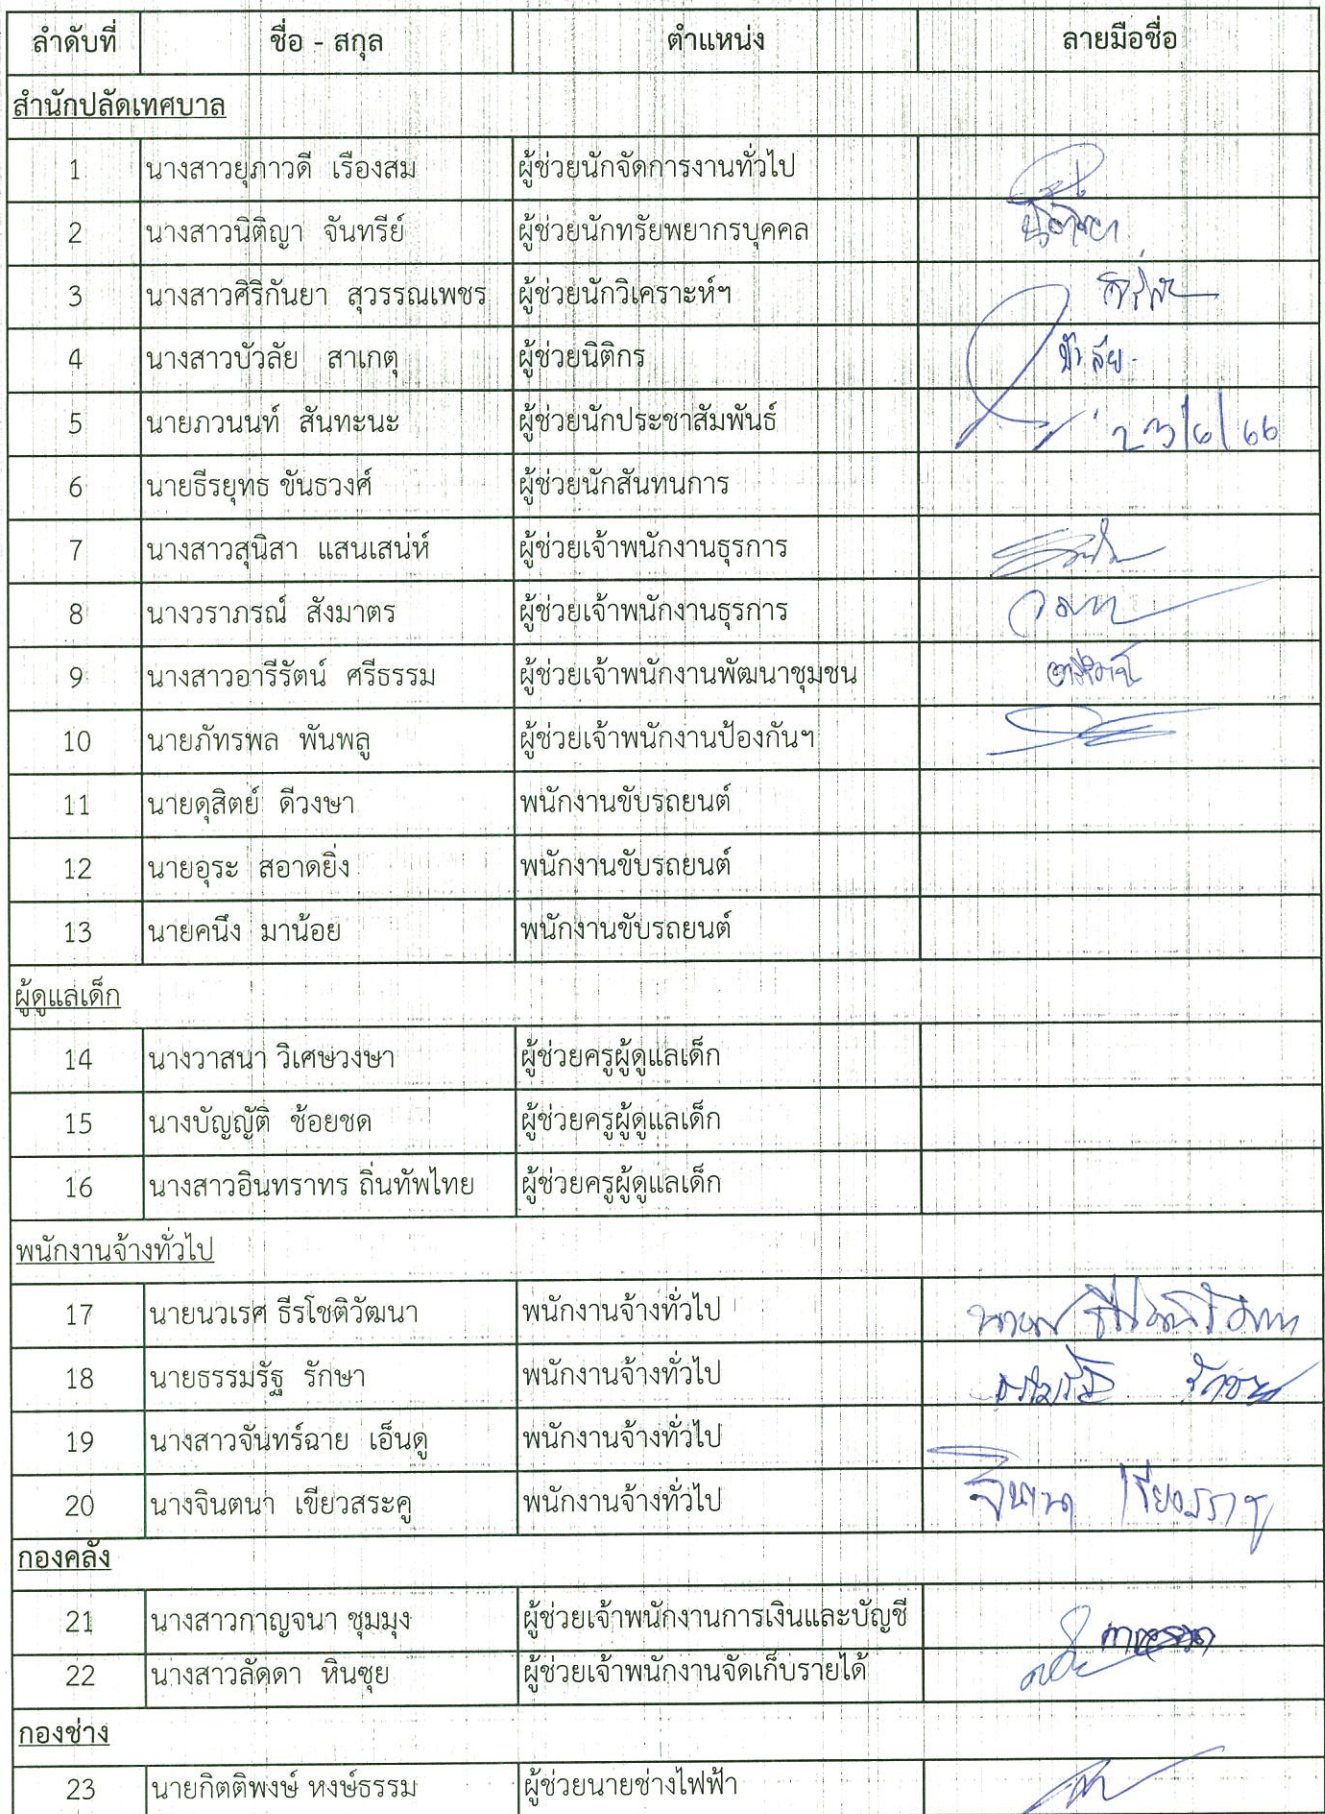 ลำดับที่ ชื่อ - สกุล ตำแหน่ง ลายมือชื่อ
สำนักปลัดเทศบาล
1 นางสาวยุภาวดี เรืองสม ผู้ช่วยนักจัดการงานทั่วไป
2 นางสาวนิติญา จันทรีย์ ผู้ช่วยนักทรัยพยากรบุคคล
3 นางสาวศิริกันยา สุวรรณเพชร ผู้ช่วยนักวิเคราะห์ฯ
4 นางสาวบัวลัย สาเกตุ ผู้ช่วยนิติกร บัวลัย
5 นายภวนนท์ สันทะนะ ผู้ช่วยนักประชาสัมพันธ์ 23/6/66
6 นายธีรยุทธ ขันธวงศ์ ผู้ช่วยนักสันทนการ
7 นางสาวสุนิสา แสนเสน่ห์ ผู้ช่วยเจ้าพนักงานธุรการ
8 นางวราภรณ์ สังมาตร ผู้ช่วยเจ้าพนักงานธุรการ
9 นางสาวอารีรัตน์ ศรีธรรม ผู้ช่วยเจ้าพนักงานพัฒนาชุมชน
10 นายภัทรพล พันพลู ผู้ช่วยเจ้าพนักงานป้องกันฯ
11 นายดุสิตย์ ดีวงษา พนักงานขับรถยนต์
12 นายอุระ สอาดยิ่ง พนักงานขับรถยนต์
13 นายคนึง มาน้อย พนักงานขับรถยนต์
ผู้ดูแลเด็ก
14 นางวาสนา วิเศษวงษา ผู้ช่วยครูผู้ดูแลเด็ก
15 นางบัญญัติ ช้อยชด ผู้ช่วยครูผู้ดูแลเด็ก
16 นางสาวอินทราทร ถิ่นทัพไทย ผู้ช่วยครูผู้ดูแลเด็ก
พนักงานจ้างทั่วไป
17 นายนวเรศ ธีรโชติวัฒนา พนักงานจ้างทั่วไป
18 นายธรรมรัฐ รักษา พนักงานจ้างทั่วไป ธรรมรัฐ รักษา
19 นางสาวจันทร์ฉาย เอ็นดู พนักงานจ้างทั่วไป
20 นางจินตนา เขียวสระคู พนักงานจ้างทั่วไป
กองคลัง
21 นางสาวกาญจนา ชุมมุง ผู้ช่วยเจ้าพนักงานการเงินและบัญชี
22 นางสาวลัดดา หินซุย ผู้ช่วยเจ้าพนักงานจัดเก็บรายได้
กองช่าง
23 นายกิตติพงษ์ หงษ์ธรรม ผู้ช่วยนายช่างไฟฟ้า